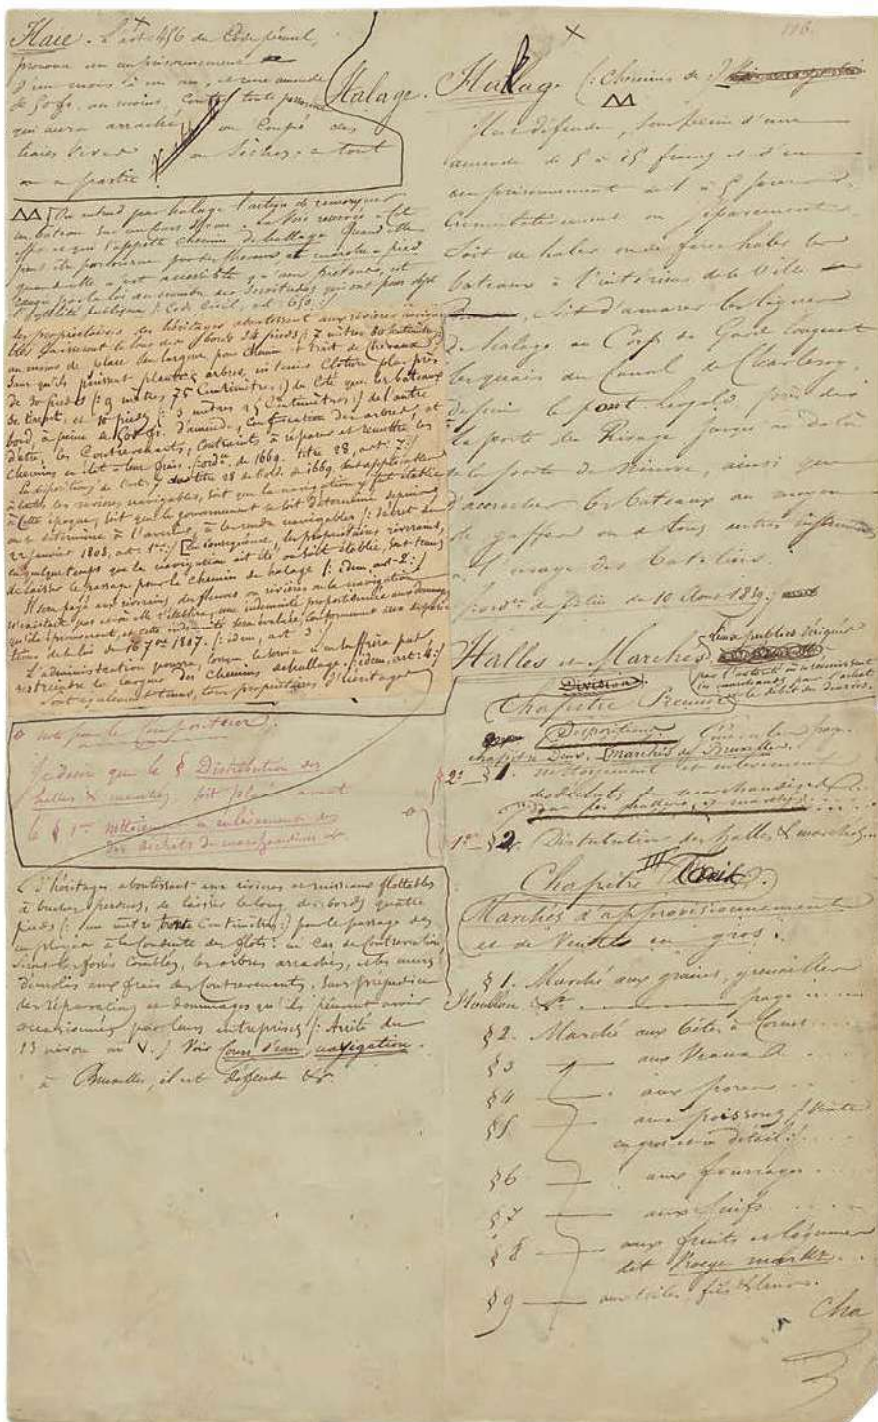 Haie. L'art. 456 du Code pénal,
prononce un emprisonnement
d'un mois à un an, et une amende
de 50 fr. au moins, contre toute personne
qui aura arraché ou coupé des
haies vives ou sèches, en tout
ou en partie.
ΔΔ [On entend par halage l'action de remorquer
un bateau sur un cours d'eau. La voie réservée à cet
effet est ce qui s'appelle chemin de hallage. Quand elle
peut être parcourue par des chevaux et marche-pied
quand elle n'est accessible qu'aux piétons, est
rangée par la loi au nombre des servitudes qui ont pour objet
l'utilité publique /: Code Civil, art. 650 :/
Les propriétaires des héritages aboutissant aux rivières naviga-
bles laisseront le long des bords 24 pieds /: 7 mètres 80 centimètres
au moins de place en largeur, pour chemin et trait de chevaux,
sans qu'ils puissent planter arbres, ni tenir clôture plus près
de 30 pieds /: 9 mètres 75 centimètres :/ du côté que les bateaux
se tirent, et 10 pieds /: 3 mètres 25 centimètres :/ de l'autre
bord, à peine de 500 fr. d'amende, confiscation des arbres, et
d'être, les contrevenants, contraints à réparer et remettre les
chemins en état à leur frais. /: ord. de 1669. titre 28, art. 7 :/
Les dispositions de l'art. 7 titre 28 de l'ord. de 1669 sont applicables
à toutes les rivières navigables, soit que la navigation y fût établie
à cette époque, soit que le gouvernement se soit déterminé depuis
ou se détermine à l'avenir, à les rendre navigables /: décret du
22 janvier 1808, art. 1er :/ [En conséquence, les propriétaires riverains,
en quelque temps que la navigation ait été ou soit établie, sont tenus
de laisser le passage pour le chemin de halage /: idem, art. 2 :/
Il sera payé aux riverains des fleuves ou rivières où la navigation
n'existait pas et où elle s'établira, une indemnité proportionnée au dommage
qu'ils éprouveront, et cette indemnité sera évaluée conformément aux disposi-
tions de la loi du 16 7bre 1807. /: idem, art 3 :/
L'administration pourra, lorsque le service n'en souffrira pas,
restreindre la largeur des chemins de hallage. /: idem, art: 4 :/
Sont également tenus, tous propriétaires d'héritages
note pour le Compositeur.
Je désire que le § Distribution des
halles & marchés, soit placé avant
le § 1er nettoiement et enlèvement des
des déchets de marchandises
d'héritages aboutissant aux rivières et ruisseaux flottables
à buches perdues, de laisser le long des bords quatre
pieds /: un mètre trente centimètres :/ pour le passage des
employés à la conduite des flots: en cas de contravention
seront les fossés comblés, les arbres arrachés, et les murs
démolis aux frais des contrevenants, sans préjudice
des réparations et dommages qu'ils peuvent avoir
occasionnés par leurs entreprises /: Arrêté du
13 nivose an V. :/ Voir Cours d'eau, navigation.
à Bruxelles, il est défendu &a.
Halage. Hallage (: Chemins de
ΔΔ
Il est défendu, sous peine d'une
amende de 5 à 15 francs et d'un
emprisonnement de 1 à 5 jours
cumulativement ou séparément
soit de haler ou de faire haler les
bateaux à l'intérieur de la Ville
soit d'amarrer les lignes
de halage au Corps de Garde longeant
les quais du Canal de Charleroy
depuis le pont Léopold, près de
la porte du Rivage jusqu'au delà
de la porte de Ninove, ainsi que
d'accrocher les bateaux au moyen
de gaffes ou de tous autres instruments
à l'usage des bateliers.
/: ord. de police du 10 Août 1839 :/
Halles et Marchés. Lieux publics désignés
par l'autorité où se réunissent
les marchands pour l'achat
et le débit des denrées.
Division.
Chapitre Premier
Dispositions
Chapitre Deux. Marchés de Bruxelles.
2° § 1. nettoiement et enlèvement
des déchets de marchandises
1er § 2. Distribution des halles & marchés
Chapitre III Trois.
Marchés d'approvisionnement
et de Ventes en gros.
§ 1. Marché aux grains, grenailles
Houblon &a. page
§ 2. Marché aux bêtes à Cornes
§ 3 aux Veaux
§ 4 aux porcs
§ 5 aux poissons /: Vente
en gros et en détail :/
§ 6 aux fourrages
§ 7 aux suifs
§ 8 aux fruits et légumes
dit Vroege markt
§ 9 aux toiles, fils & lins.
Cha